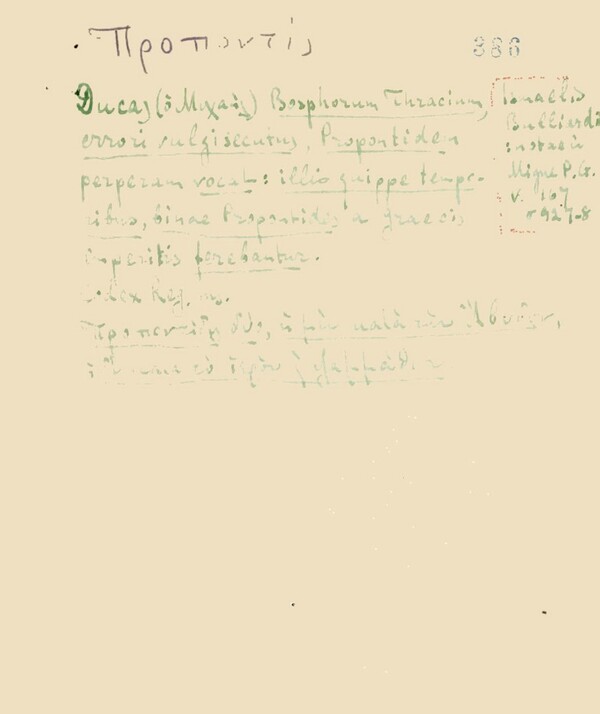 Προποντίς
386
Ducas (ὁ Μιχαὴλ) Bosphorum Thracium,
errori vulgi secutus, Propontidem
perperam vocat: illis quippe tempo-
ribus, binae Propontides a graecis
imperitis ferebantur.
Codex Reg. ms.
Προποντίδες δύο, ἡ μὲν κατὰ τὴν Ἄβυδον,
Ismaelis
Bulliardi
notae in
Migne P.G.
v. 157
σ 927-8